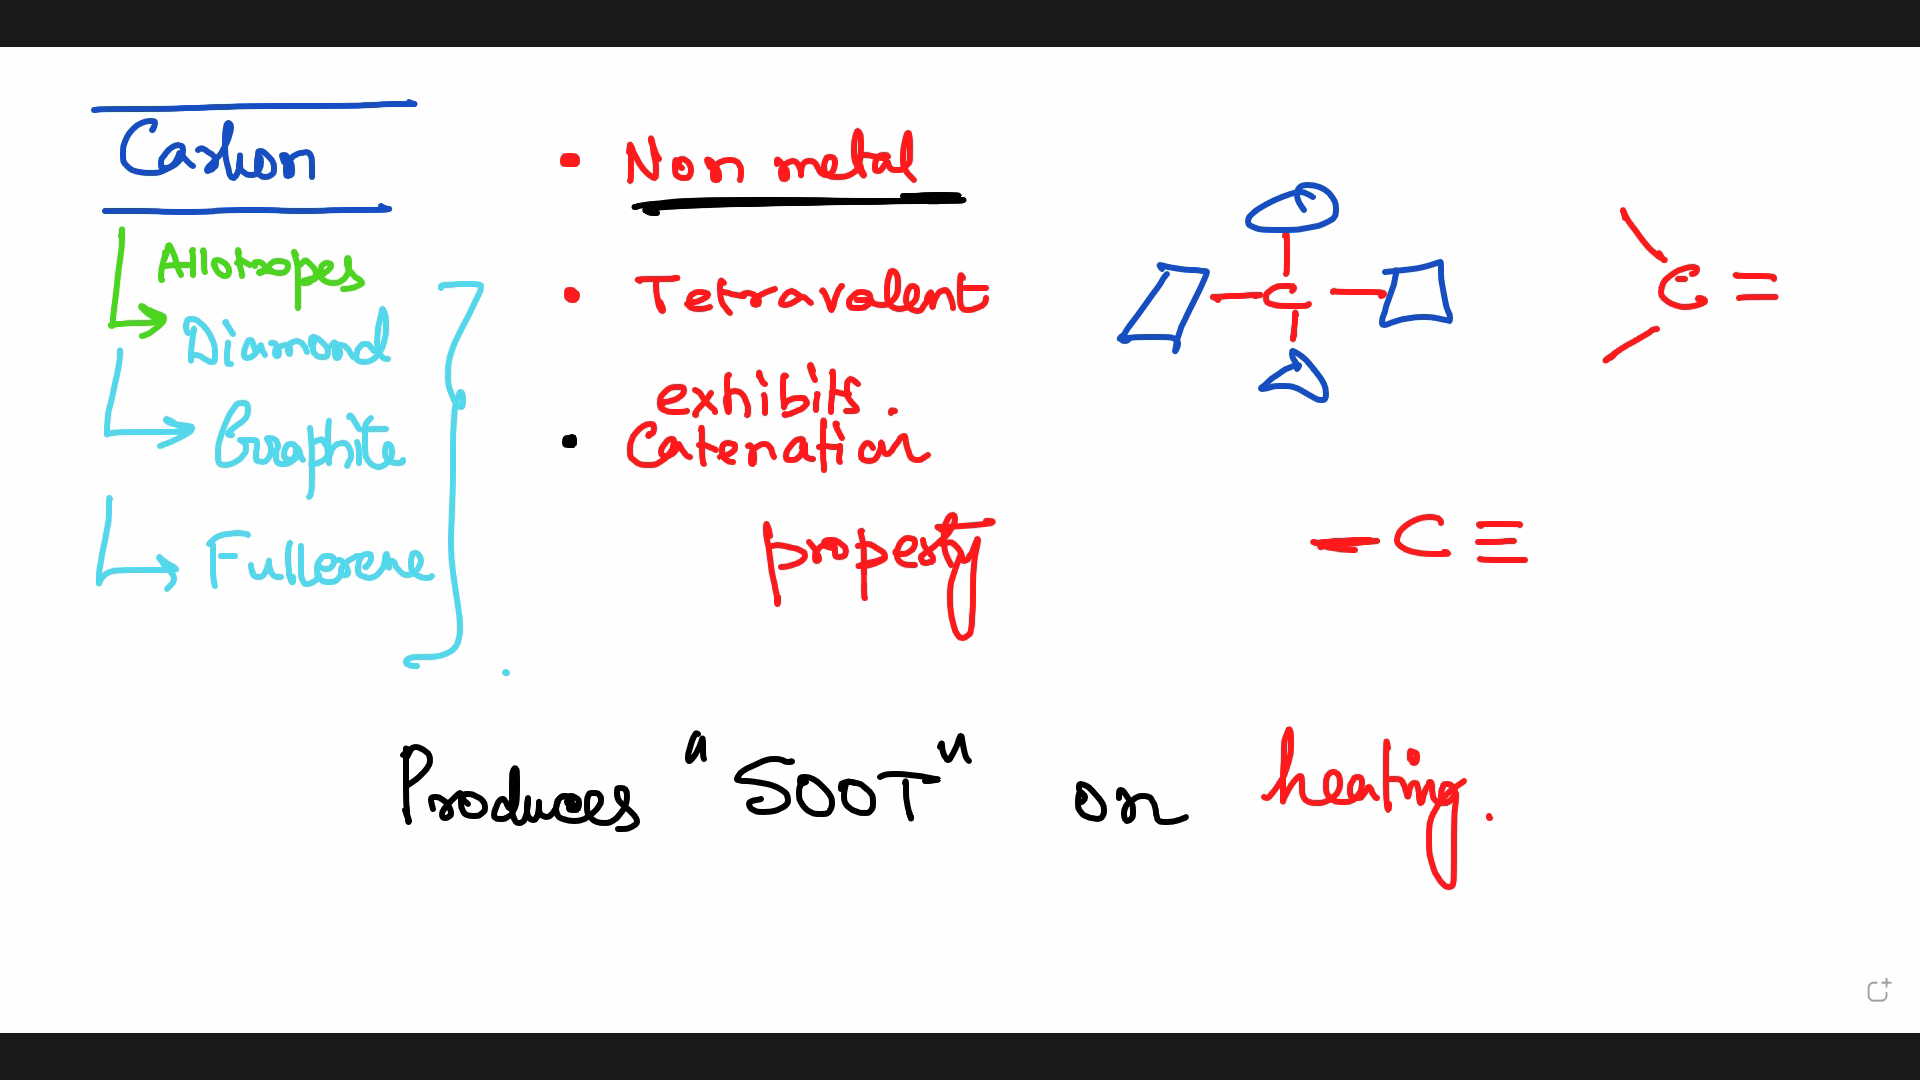 Carbon
Allotropes
Diamond
Graphite
Fullerene
• Non metal
• Tetravalent
exhibits.
• Catenation
property
C
C =
- C ≡
Produces "SOOT" on heating.